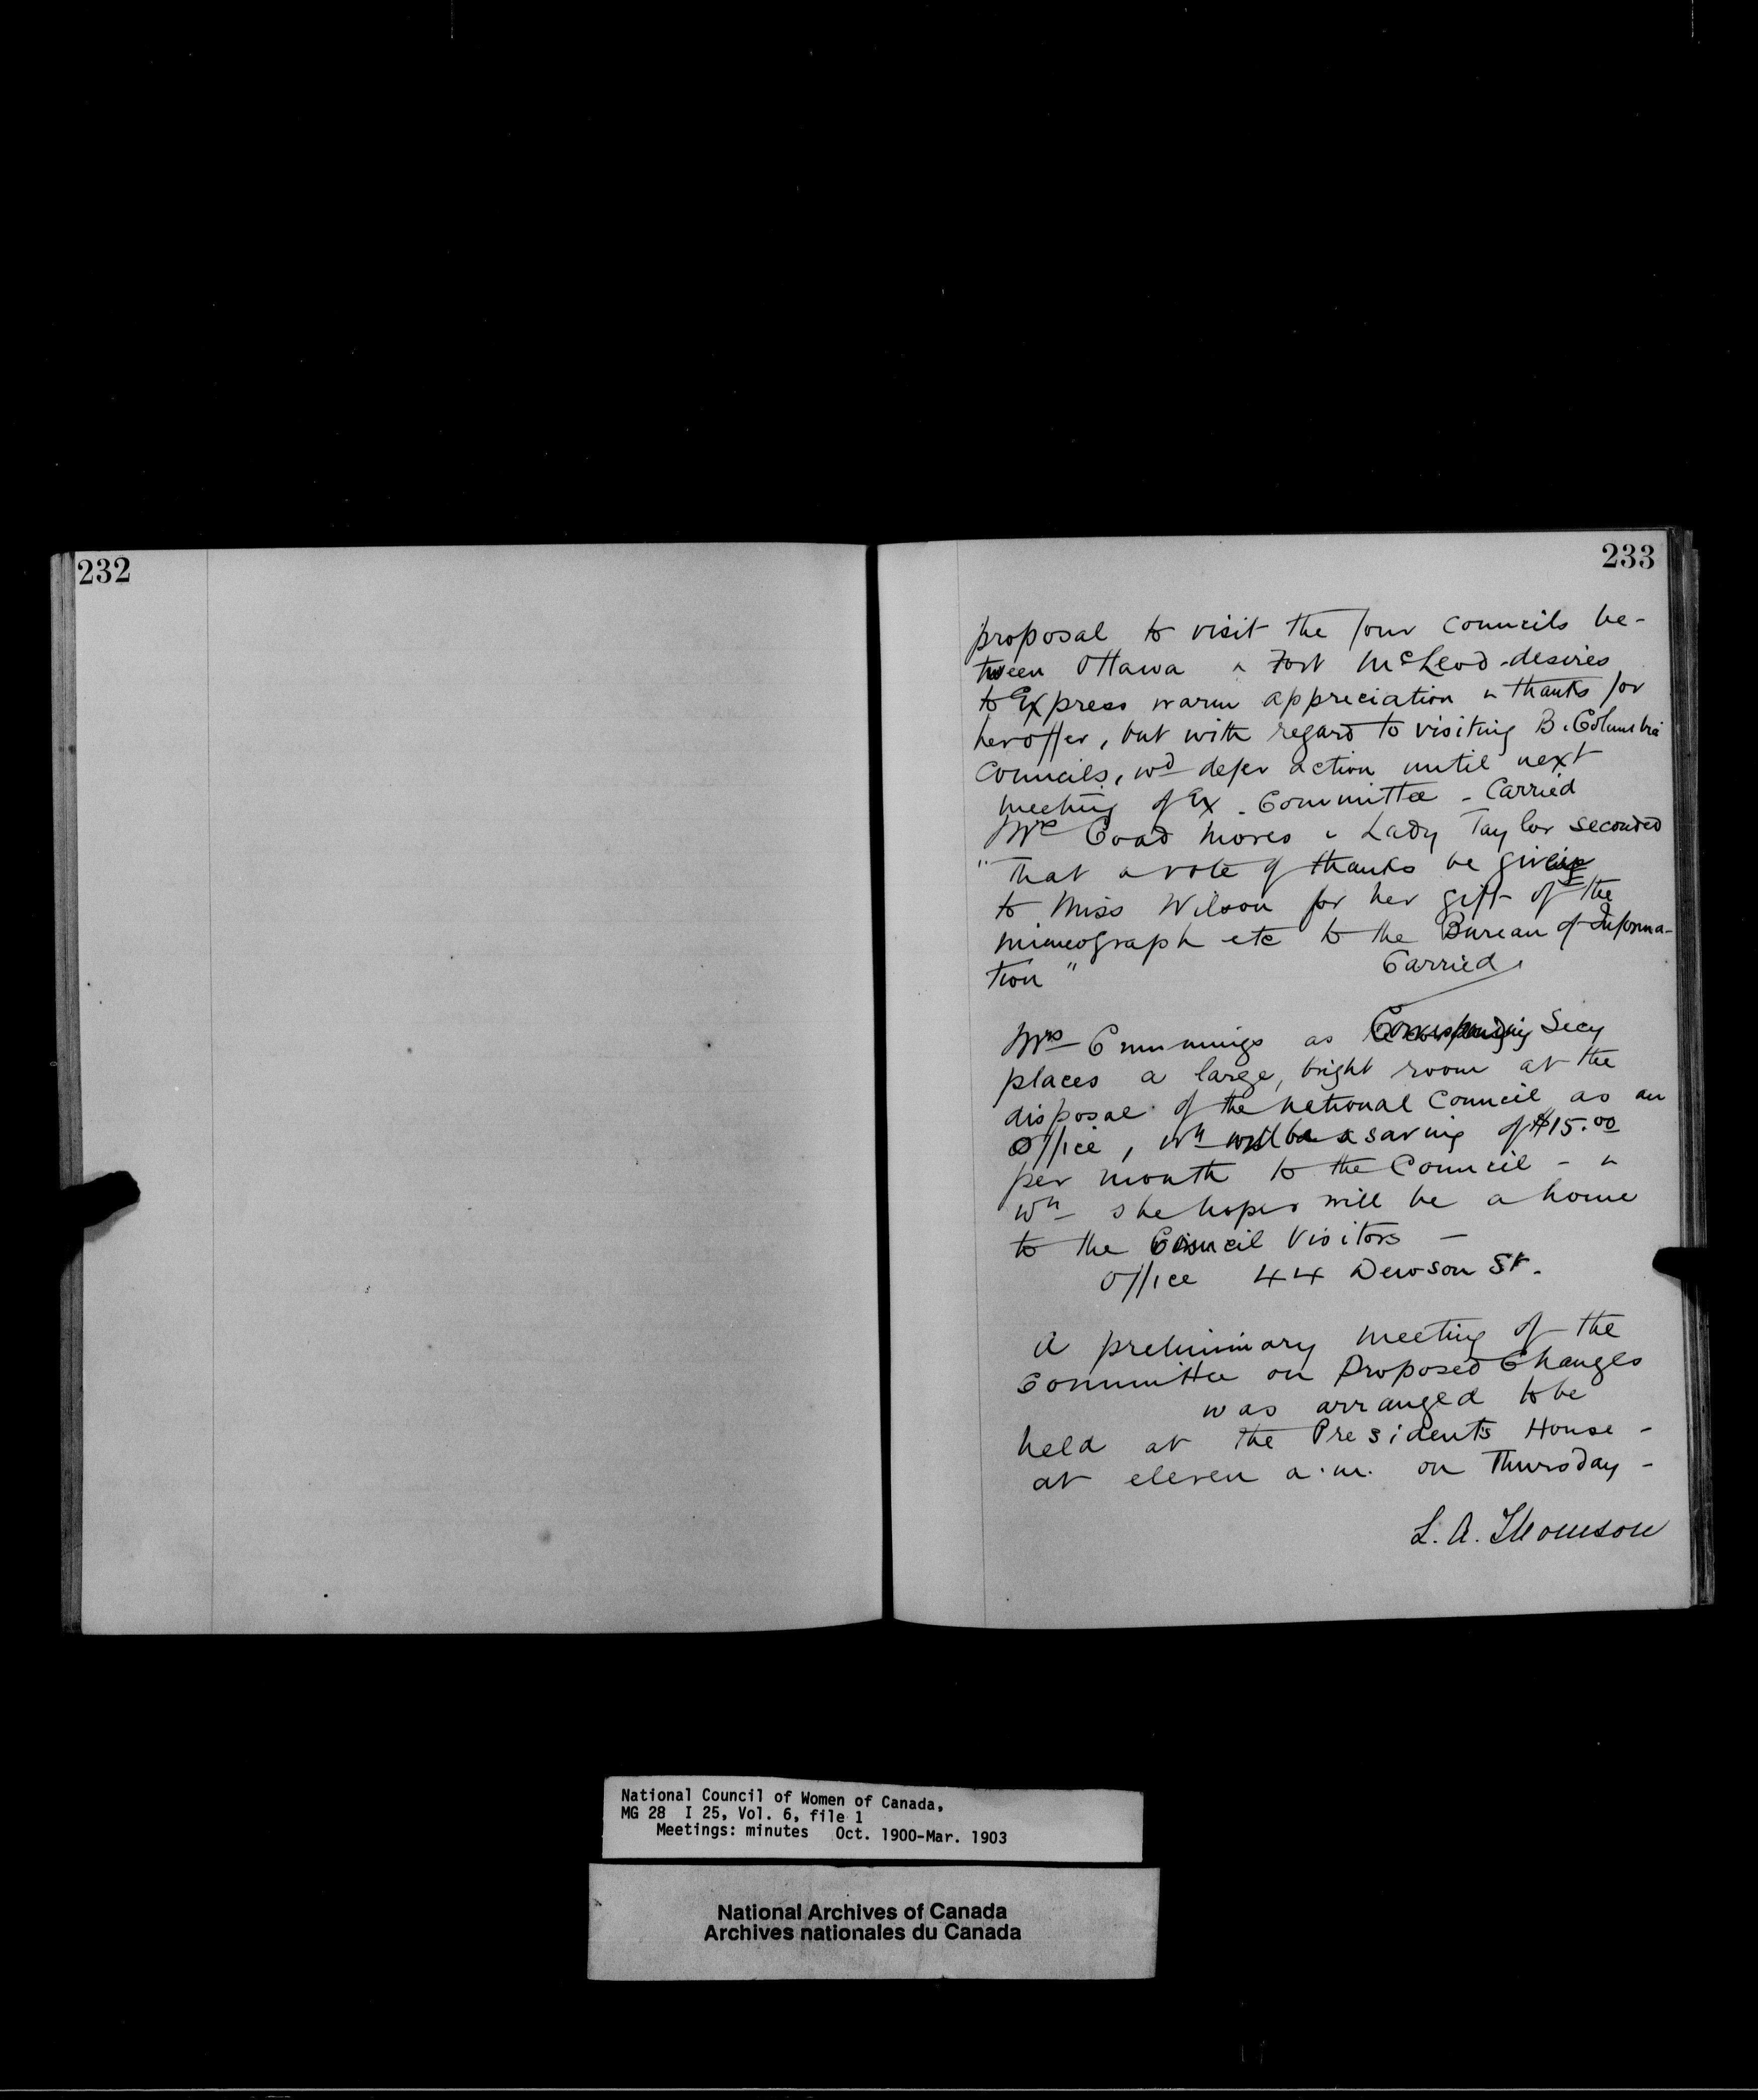 232
233
proposal to visit the four Councils be-
tween Ottawa & Fort McLeod - desires
to Express warm appreciation & thanks for
her offer, but with regard to visiting B. Columbia
Councils, wd defer action until next
meeting of Ex. Committee - Carried
Mrs Coad moves & Lady Taylor seconded
"That a vote of thanks be given
to Miss Wilson for her gift of the
mimeograph etc to the Bureau of Informa-
tion" Carried
Mrs Cummings as Corresponding Secy
places a large, bright room at the
disposal of the National Council as an
Office, wh will be a saving of $15.00
per month to the Council - &
wh she hopes will be a home
to the Council Visitors -
Office 44 Dewson St.
A preliminary meeting of the
Committee on Proposed Changes
was arranged to be
held at the President's House -
at eleven a.m. on Thursday -
L. A. Thomson
National Council of Women of Canada,
MG 28 I 25, Vol. 6, file 1
Meetings: minutes Oct. 1900-Mar. 1903
National Archives of Canada
Archives nationales du Canada